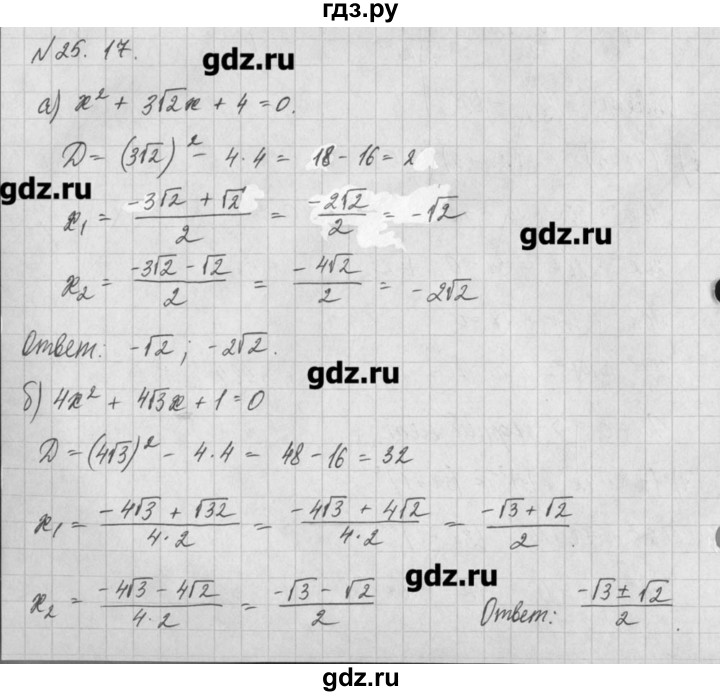 гдз.ру
№25.17.
gdz.ru
а) x² + 3√2x + 4 = 0.
D = (3√2)² - 4·4 = 18 - 16 = 2
gdz.ru
x₁ = (-3√2 + √2)/2 = (-2√2)/2 = -√2
gdz.ru
x₂ = (-3√2 - √2)/2 = (-4√2)/2 = -2√2
Ответ: -√2; -2√2.
gdz.ru
б) 4x² + 4√3x + 1 = 0
D = (4√3)² - 4·4 = 48 - 16 = 32
x₁ = (-4√3 + √32)/(4·2) = (-4√3 + 4√2)/(4·2) = (-√3 + √2)/2.
gdz.ru
x₂ = (-4√3 - 4√2)/(4·2) = (-√3 - √2)/2 Ответ: (-√3 ± √2)/2.
gdz.ru